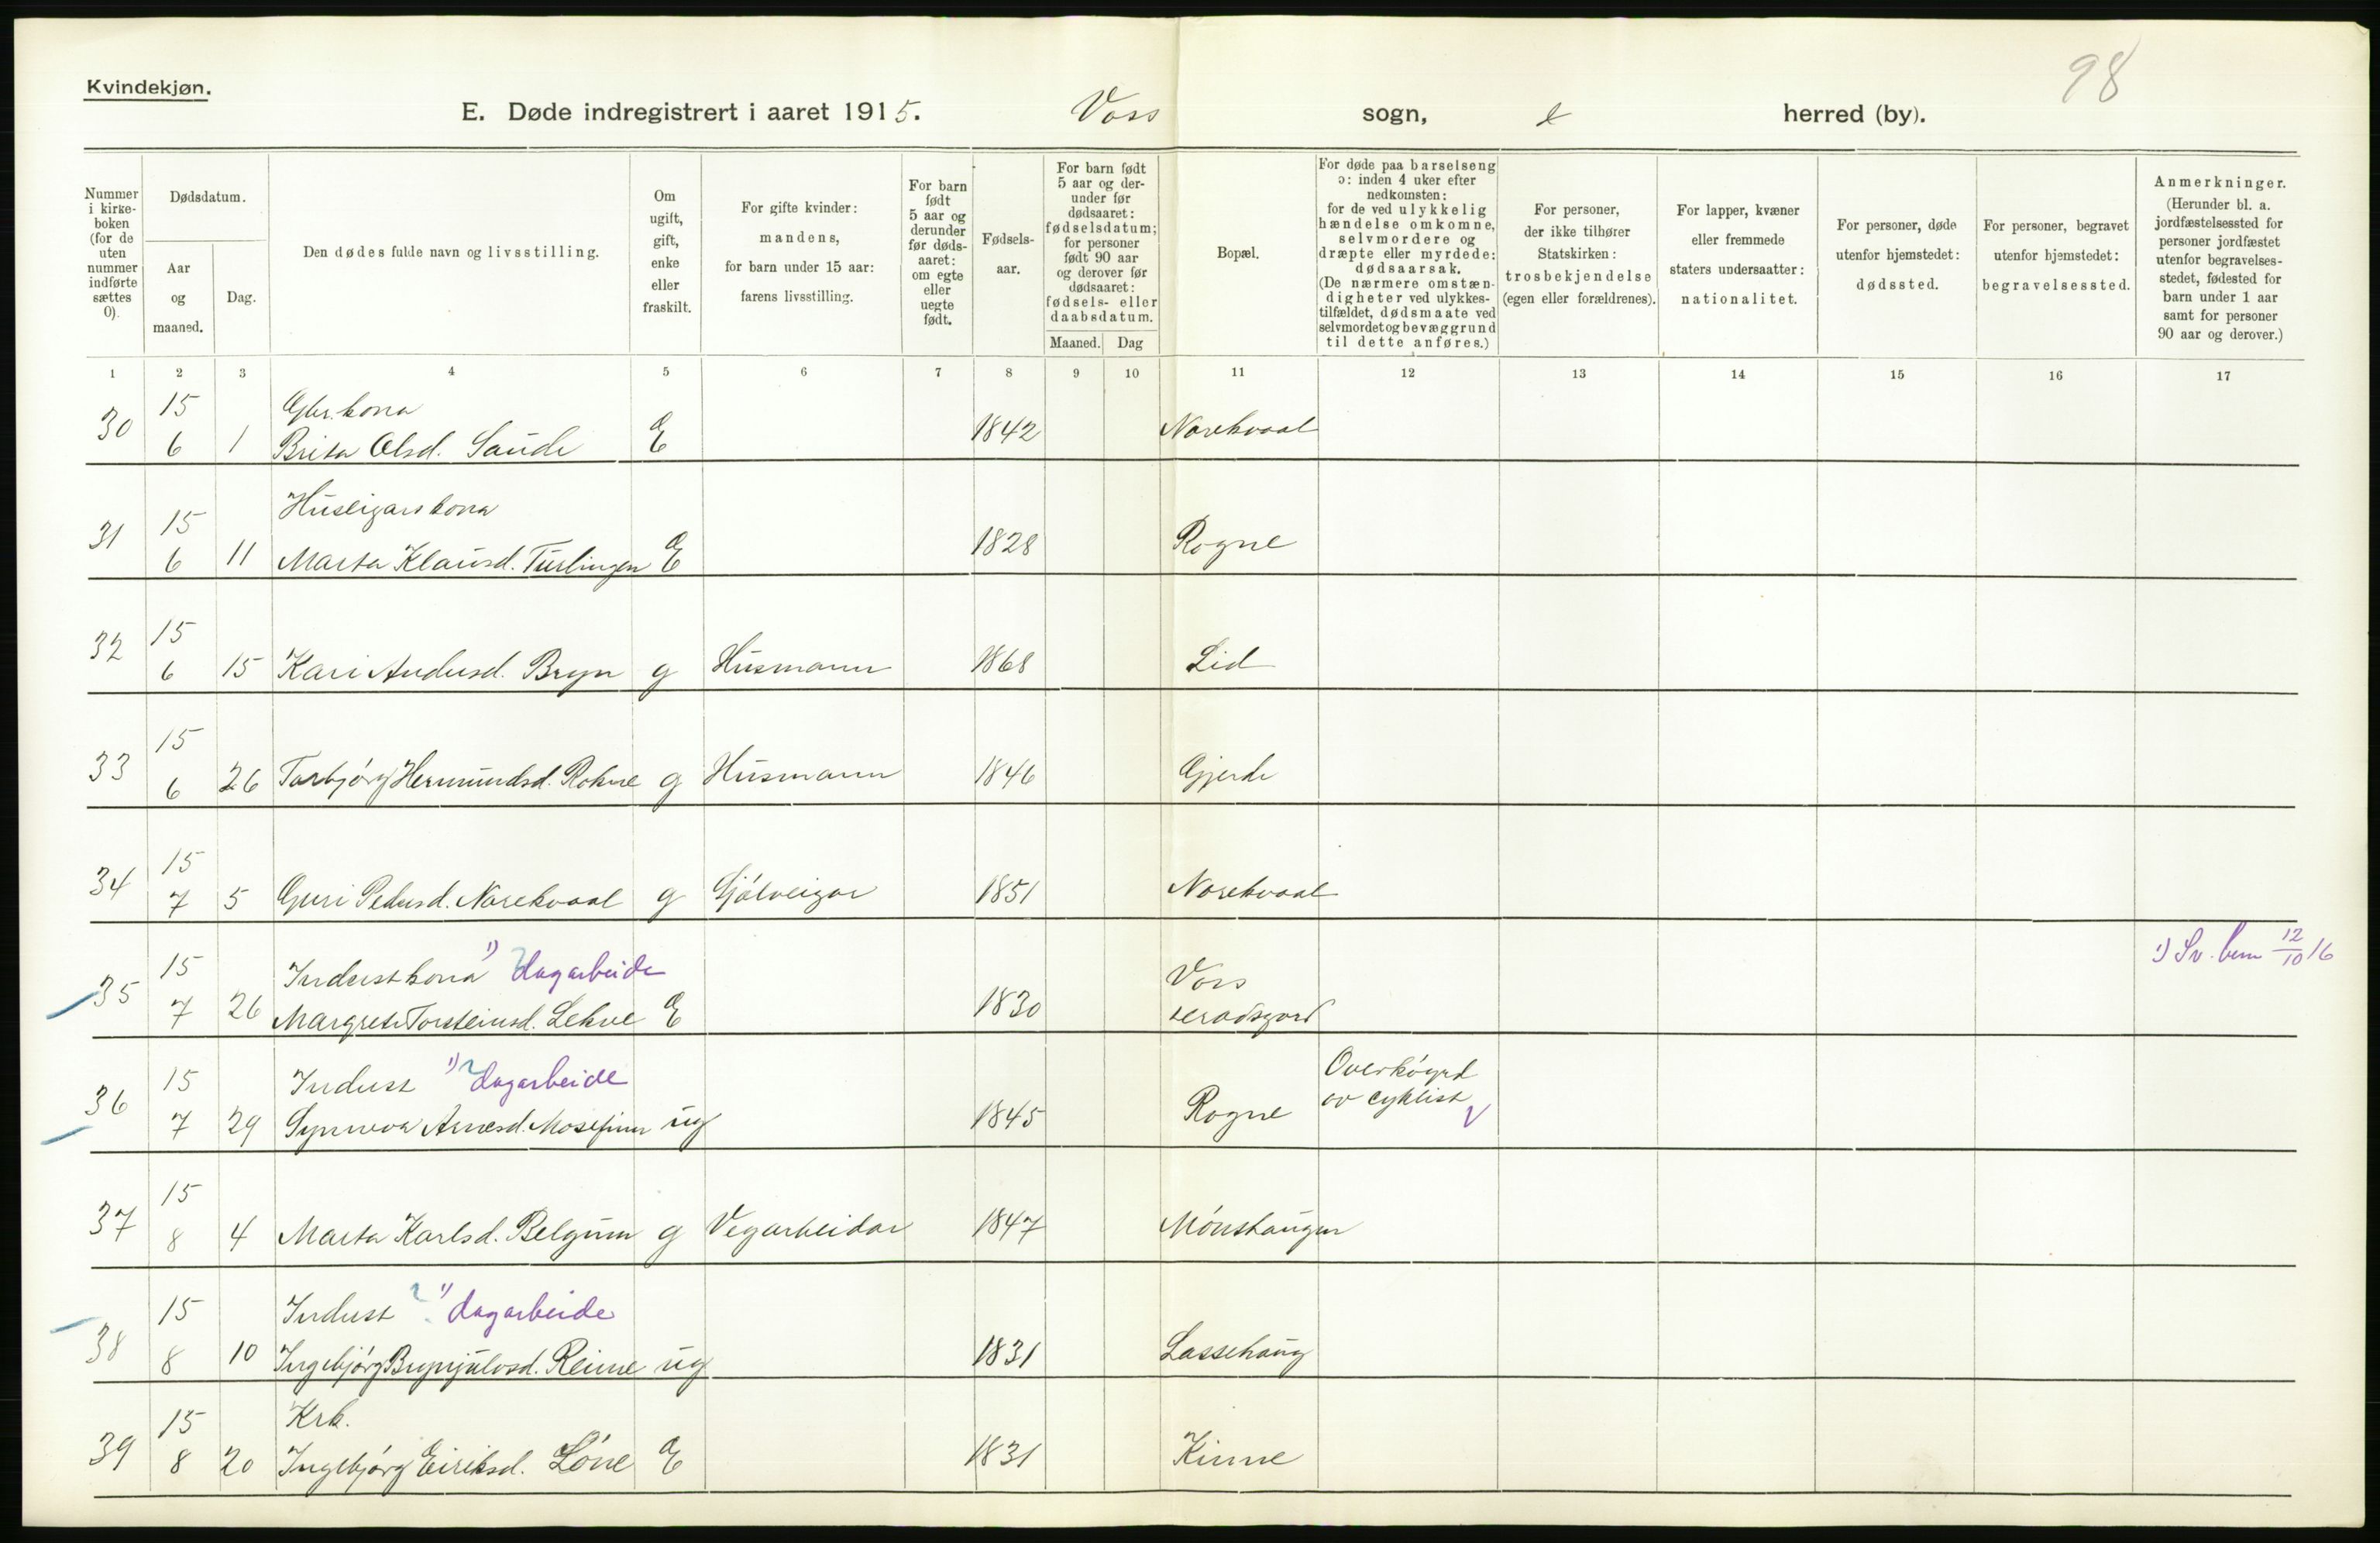 Kvindekjøn.
98
E. Døde indregistrert i aaret 1915. Voss sogn, herred (by).
Nummer i kirkeboken (for de uten nummer indførte sættes 0).
Dødsdatum.
Aar og maaned.
Dag.
Den dødes fulde navn og livsstilling.
Om ugift, gift, enke eller fraskilt.
For gifte kvinder: mandens, for barn under 15 aar: farens livsstilling.
For barn født 5 aar og derunder før dødsaaret: om egte eller uegte født.
Fødsels-aar.
For barn født 5 aar og derunder før dødsaaret: fødselsdatum; for personer født 90 aar og derover før dødsaaret: fødsels- eller daabsdatum.
Maaned. Dag
Bopæl.
For døde paa barselseng ɔ: inden 4 uker efter nedkomsten: for de ved ulykkelig hændelse omkomne, selvmordere og dræpte eller myrdede: dødsaarsak. (De nærmere omstændigheter ved ulykkestilfældet, dødsmaate ved selvmordet og bevæggrund til dette anføres.)
For personer, der ikke tilhører Statskirken: trosbekjendelse (egen eller forældrenes).
For lapper, kvæner eller fremmede staters undersaatter: nationalitet.
For personer, døde utenfor hjemstedet: dødssted.
For personer, begravet utenfor hjemstedet: begravelsessted.
Anmerkninger. (Herunder bl. a. jordfæstelsessted for personer jordfæstet utenfor begravelsesstedet, fødested for barn under 1 aar samt for personer 90 aar og derover.)
1 2 3 4 5 6 7 8 9 10 11 12 13 14 15 16 17
15 Gbr. kona
30 6 1 Brita Olsd. Saude E 1842 Norekvaal
15 Huseigarskona
31 6 11 Marta Klausd. Turlingen E 1828 Rogne
15
32 6 15 Kari Andersd. Bryn g Husmann 1868 Lid
15
33 6 26 Torbjørg Hermundsd. Rokne g Husmann 1846 Gjerde
15
34 7 5 Guri Pedersd. Norekvaal g Sjølveigar 1851 Norekvaal
15 Inderstkona 1) dagarbeide Voss 1) Sv. bem 12/10 16
35 7 26 Margreta Torsteinsd. Lekve E 1830
15 Inderst 1) ? dagarbeide Overkøyrd
36 7 29 Synneva Arnesd. Mosefinn ug 1845 Rogne av cyklist
15
37 8 4 Marta Karlsd. Belgum g Vegarbeidar 1847 Mønshaugen
15 Inderst ? 1) dagarbeide
38 8 10 Ingebjørg Brynjulvsd. Reime ug 1831 Lassehaug
15 Krk.
39 8 20 Ingebjørg Eiriksd. Løne E 1831 Kinne